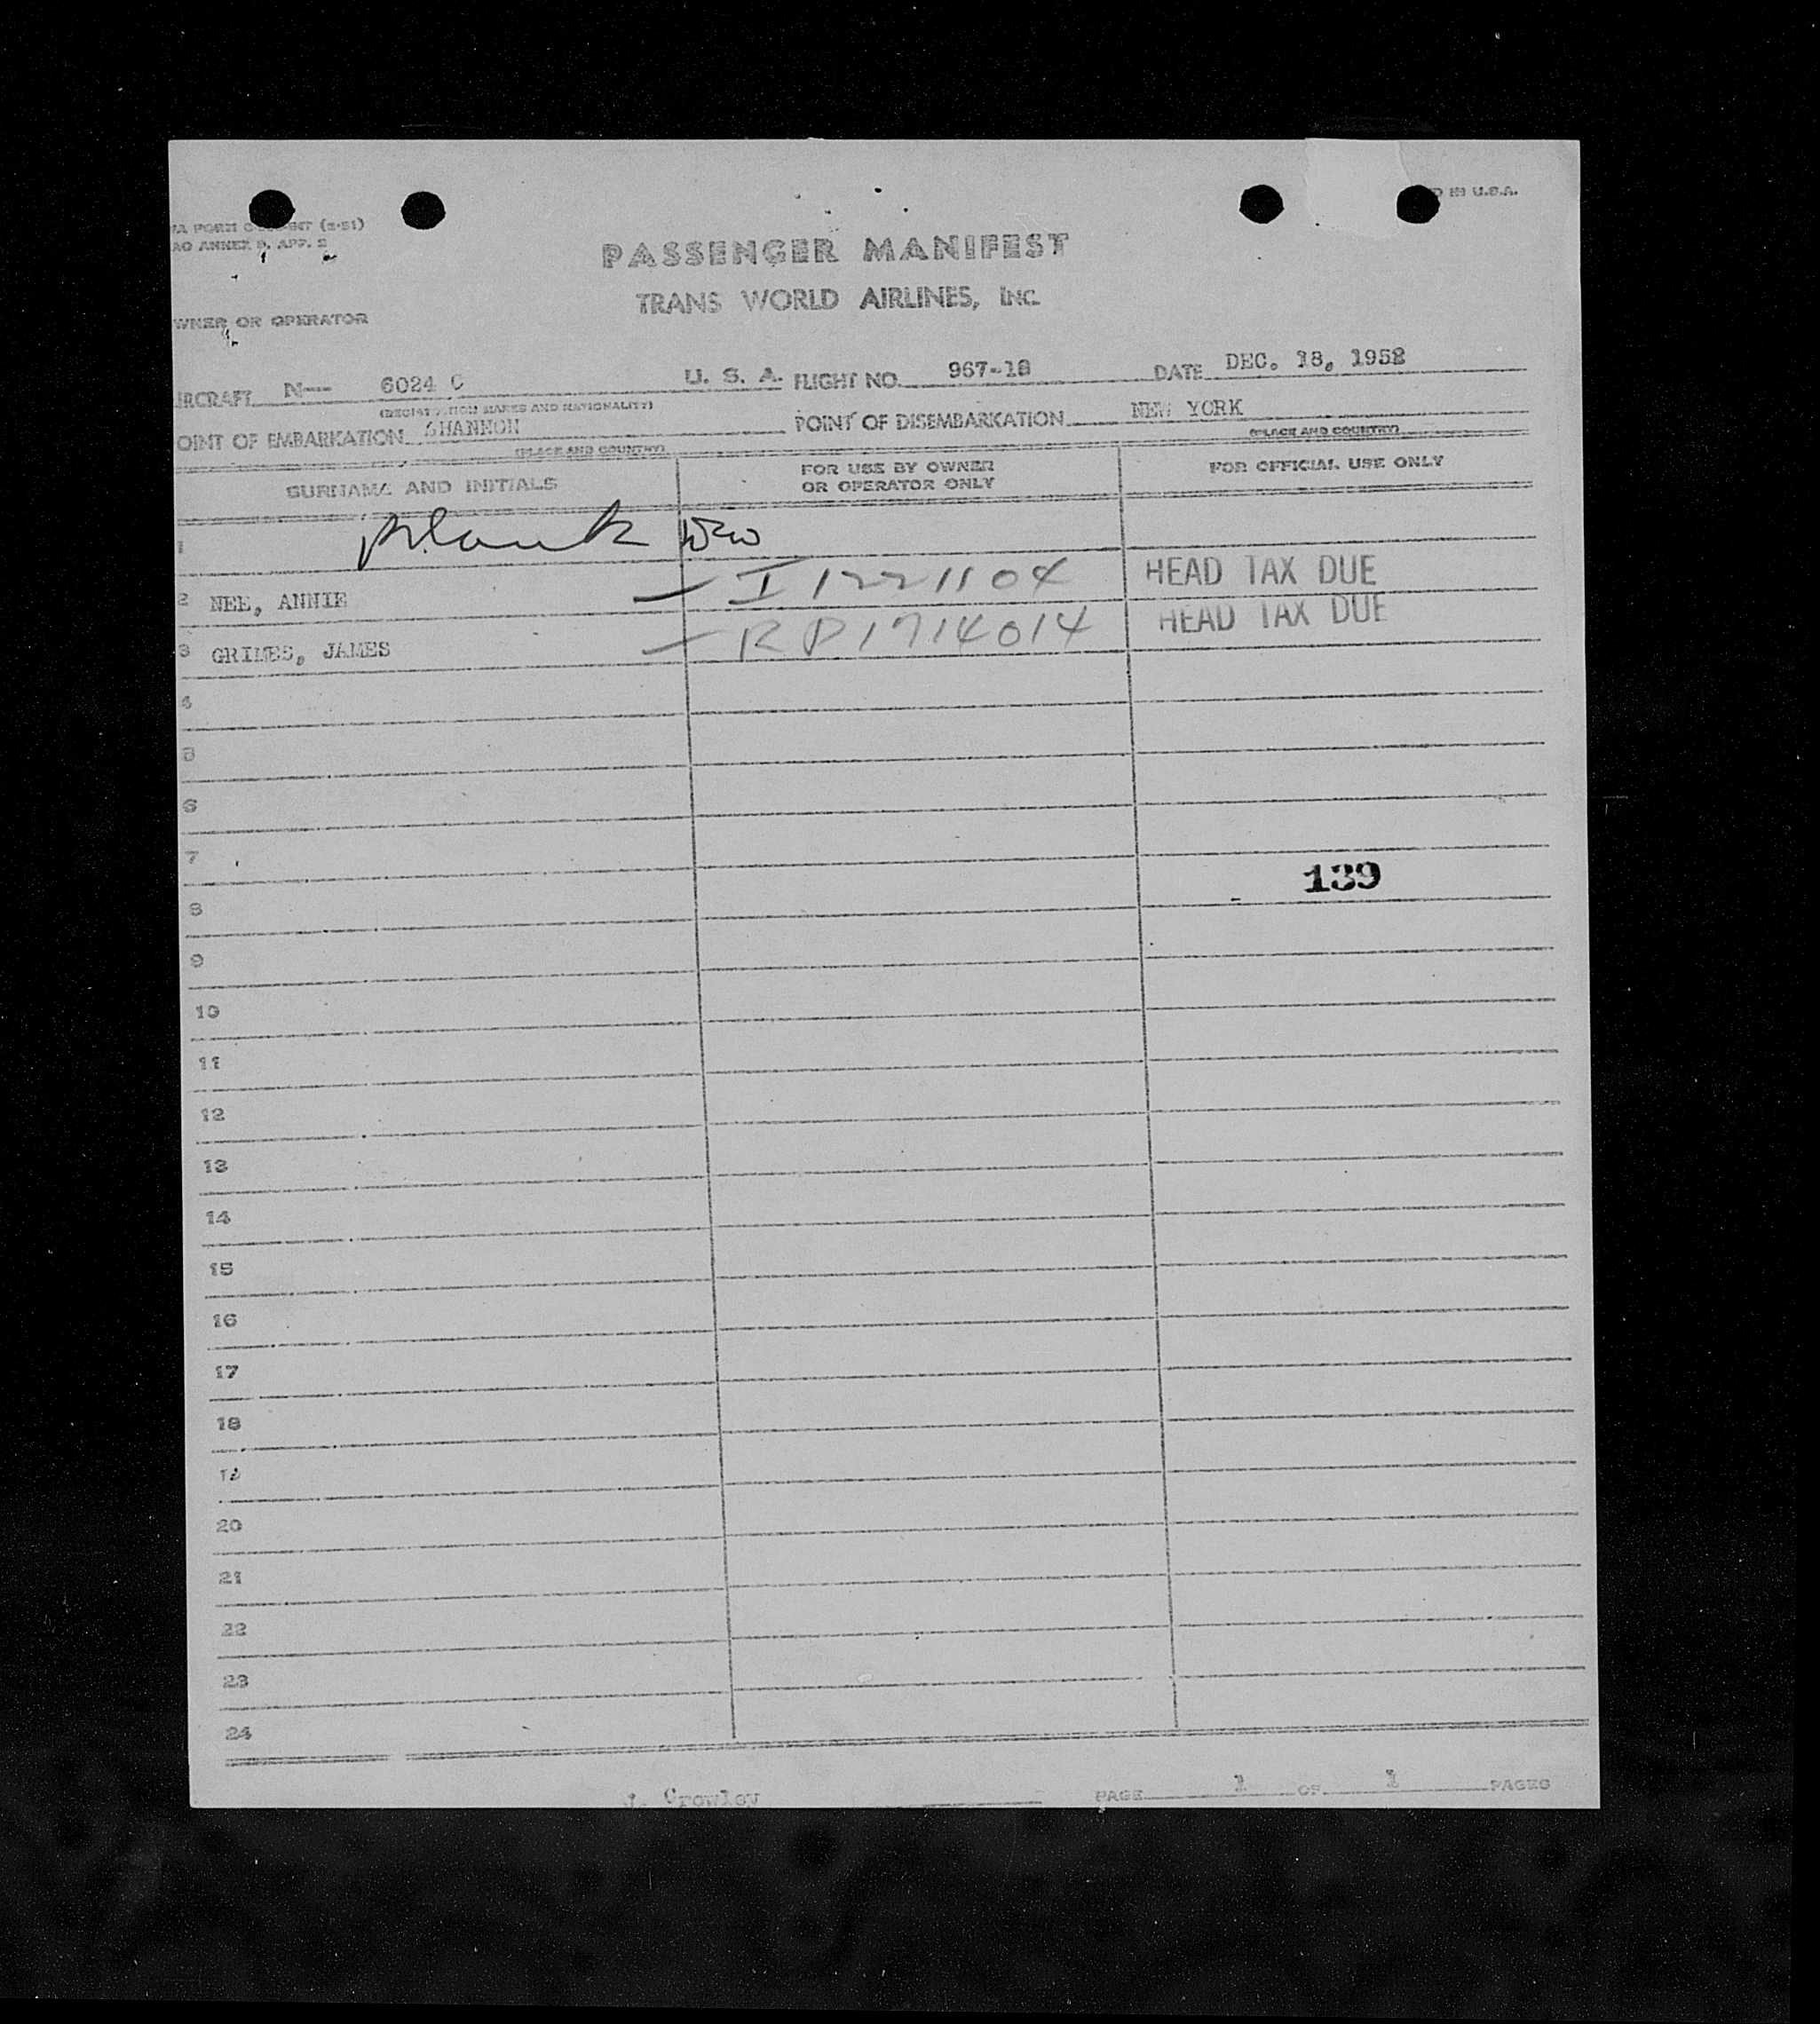 (2-51)
ANNEX 9, APP. 2
D IN U.S.A.
PASSENGER MANIFEST
TRANS WORLD AIRLINES, INC.
WNER OR OPERATOR
IRCRAFT N-- 6024 C U. S. A. FLIGHT NO. 967-18 DATE DEC. 18, 1952
(REGISTRATION MARKS AND NATIONALITY)
OINT OF EMBARKATION SHANNON POINT OF DISEMBARKATION NEW YORK
(PLACE AND COUNTRY) (PLACE AND COUNTRY)
SURNAME AND INITIALS FOR USE BY OWNER OR OPERATOR ONLY FOR OFFICIAL USE ONLY
1 blank
2 NEE, ANNIE I 1221104 HEAD TAX DUE
3 GRIMES, JAMES RP1714014 HEAD TAX DUE
4
5
6
7
139
8
9
10
11
12
13
14
15
16
17
18
19
20
21
22
23
24
J. Crowley PAGE 1 OF 1 PAGES